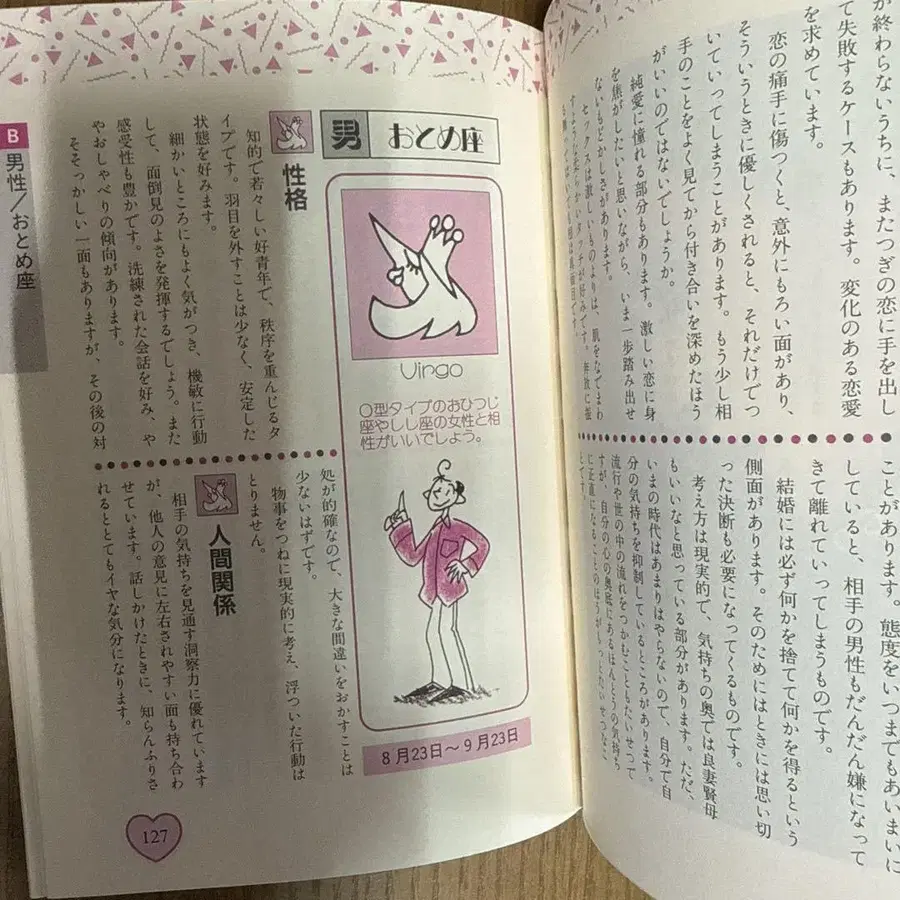 が終わらないうちに、またつぎの恋に手を出し
て失敗するケースもあります。変化のある恋愛
を求めています。
恋の痛手に傷つくと、意外にもろい面があり、
そういうときに優しくされると、それだけでつ
いていってしまうことがあります。もう少し相
手のことをよく見てから付き合いを深めたほう
がいいのではないでしょうか。
純愛に憧れる部分もあります。激しい恋に身
を焦がしたいと思いながら、いま一歩踏み出せ
ないもどかしさがあります。
セックスは激しいものよりは、肌をなでまわ
ことがあります。態度をいつまでもあいまいに
していると、相手の男性もだんだん嫌になって
きて離れていってしまうものです。
結婚には必ず何かを捨てて何かを得るという
側面があります。そのためにはときには思い切
った決断も必要になってくるものです。
考え方は現実的で、気持ちの奥では良妻賢母
もいいなと思っている部分があります。ただ、
いまの時代はあまりはやらないので、自分で自
分の気持ちを抑制しているところがあります。
流行や世の中の流れをつかむこともたいせつで
すが、自分の心の奥底にあるほんとうの気持ち
に正直になることのほうがもっとたいせつなこ
とです。
男 おとめ座
Virgo
O型タイプのおひつじ
座やしし座の女性と相
性がいいでしょう。
8月23日〜9月23日
性格
知的で若々しい好青年で、秩序を重んじるタ
イプです。羽目を外すことは少なく、安定した
状態を好みます。
細かいところにもよく気がつき、機敏に行動
して、面倒見のよさを発揮するでしょう。また
感受性も豊かです。洗練された会話を好み、や
やおしゃべりの傾向があります。
そそっかしい一面もありますが、その後の対
処が的確なので、大きな間違いをおかすことは
少ないはずです。
物事をつねに現実的に考え、浮ついた行動は
とりません。
人間関係
相手の気持ちを見通す洞察力に優れています
が、他人の意見に左右されやすい面も持ち合わ
せています。話しかけたときに、知らんふりさ
れるととてもイヤな気分になります。
B 男性/おとめ座
127